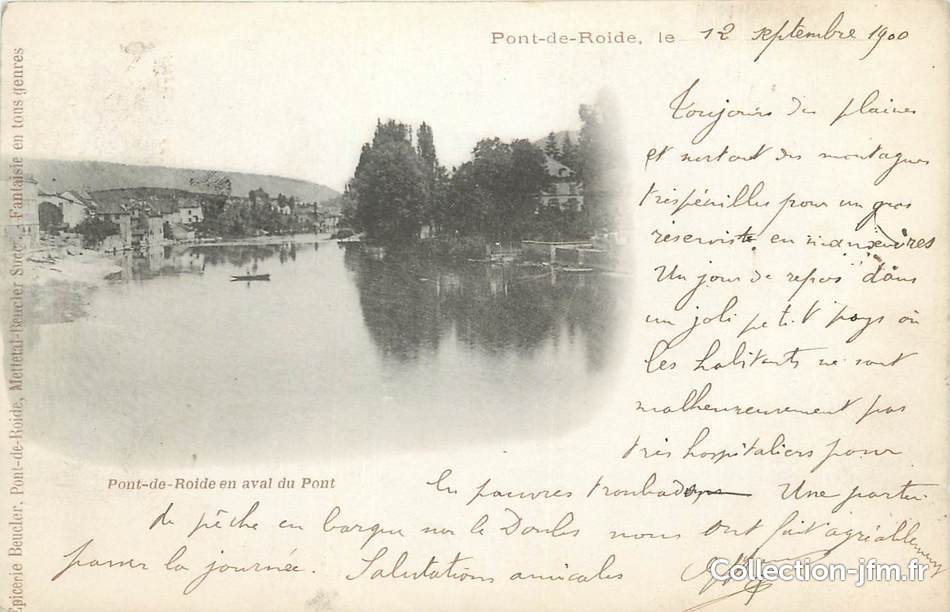 Pont-de-Roide, le 12 septembre 1900
Toujours des plaines
et surtout des montagnes
très pénibles pour un gros
réserviste en manœuvres
Un jour de repos dans
un joli petit pays où
les habitants ne sont
malheureusement pas
très hospitaliers pour
Pont-de-Roide en aval du Pont
les pauvres troubades Une partie
de pêche en barque sur le Doubs nous ont fait agréablement
passer la journée. Salutations amicales
Collection-jfm.fr
Epicerie Beucler, Pont-de-Roide, Mettetal-Beucler Succr. - Fantaisie en tous genres